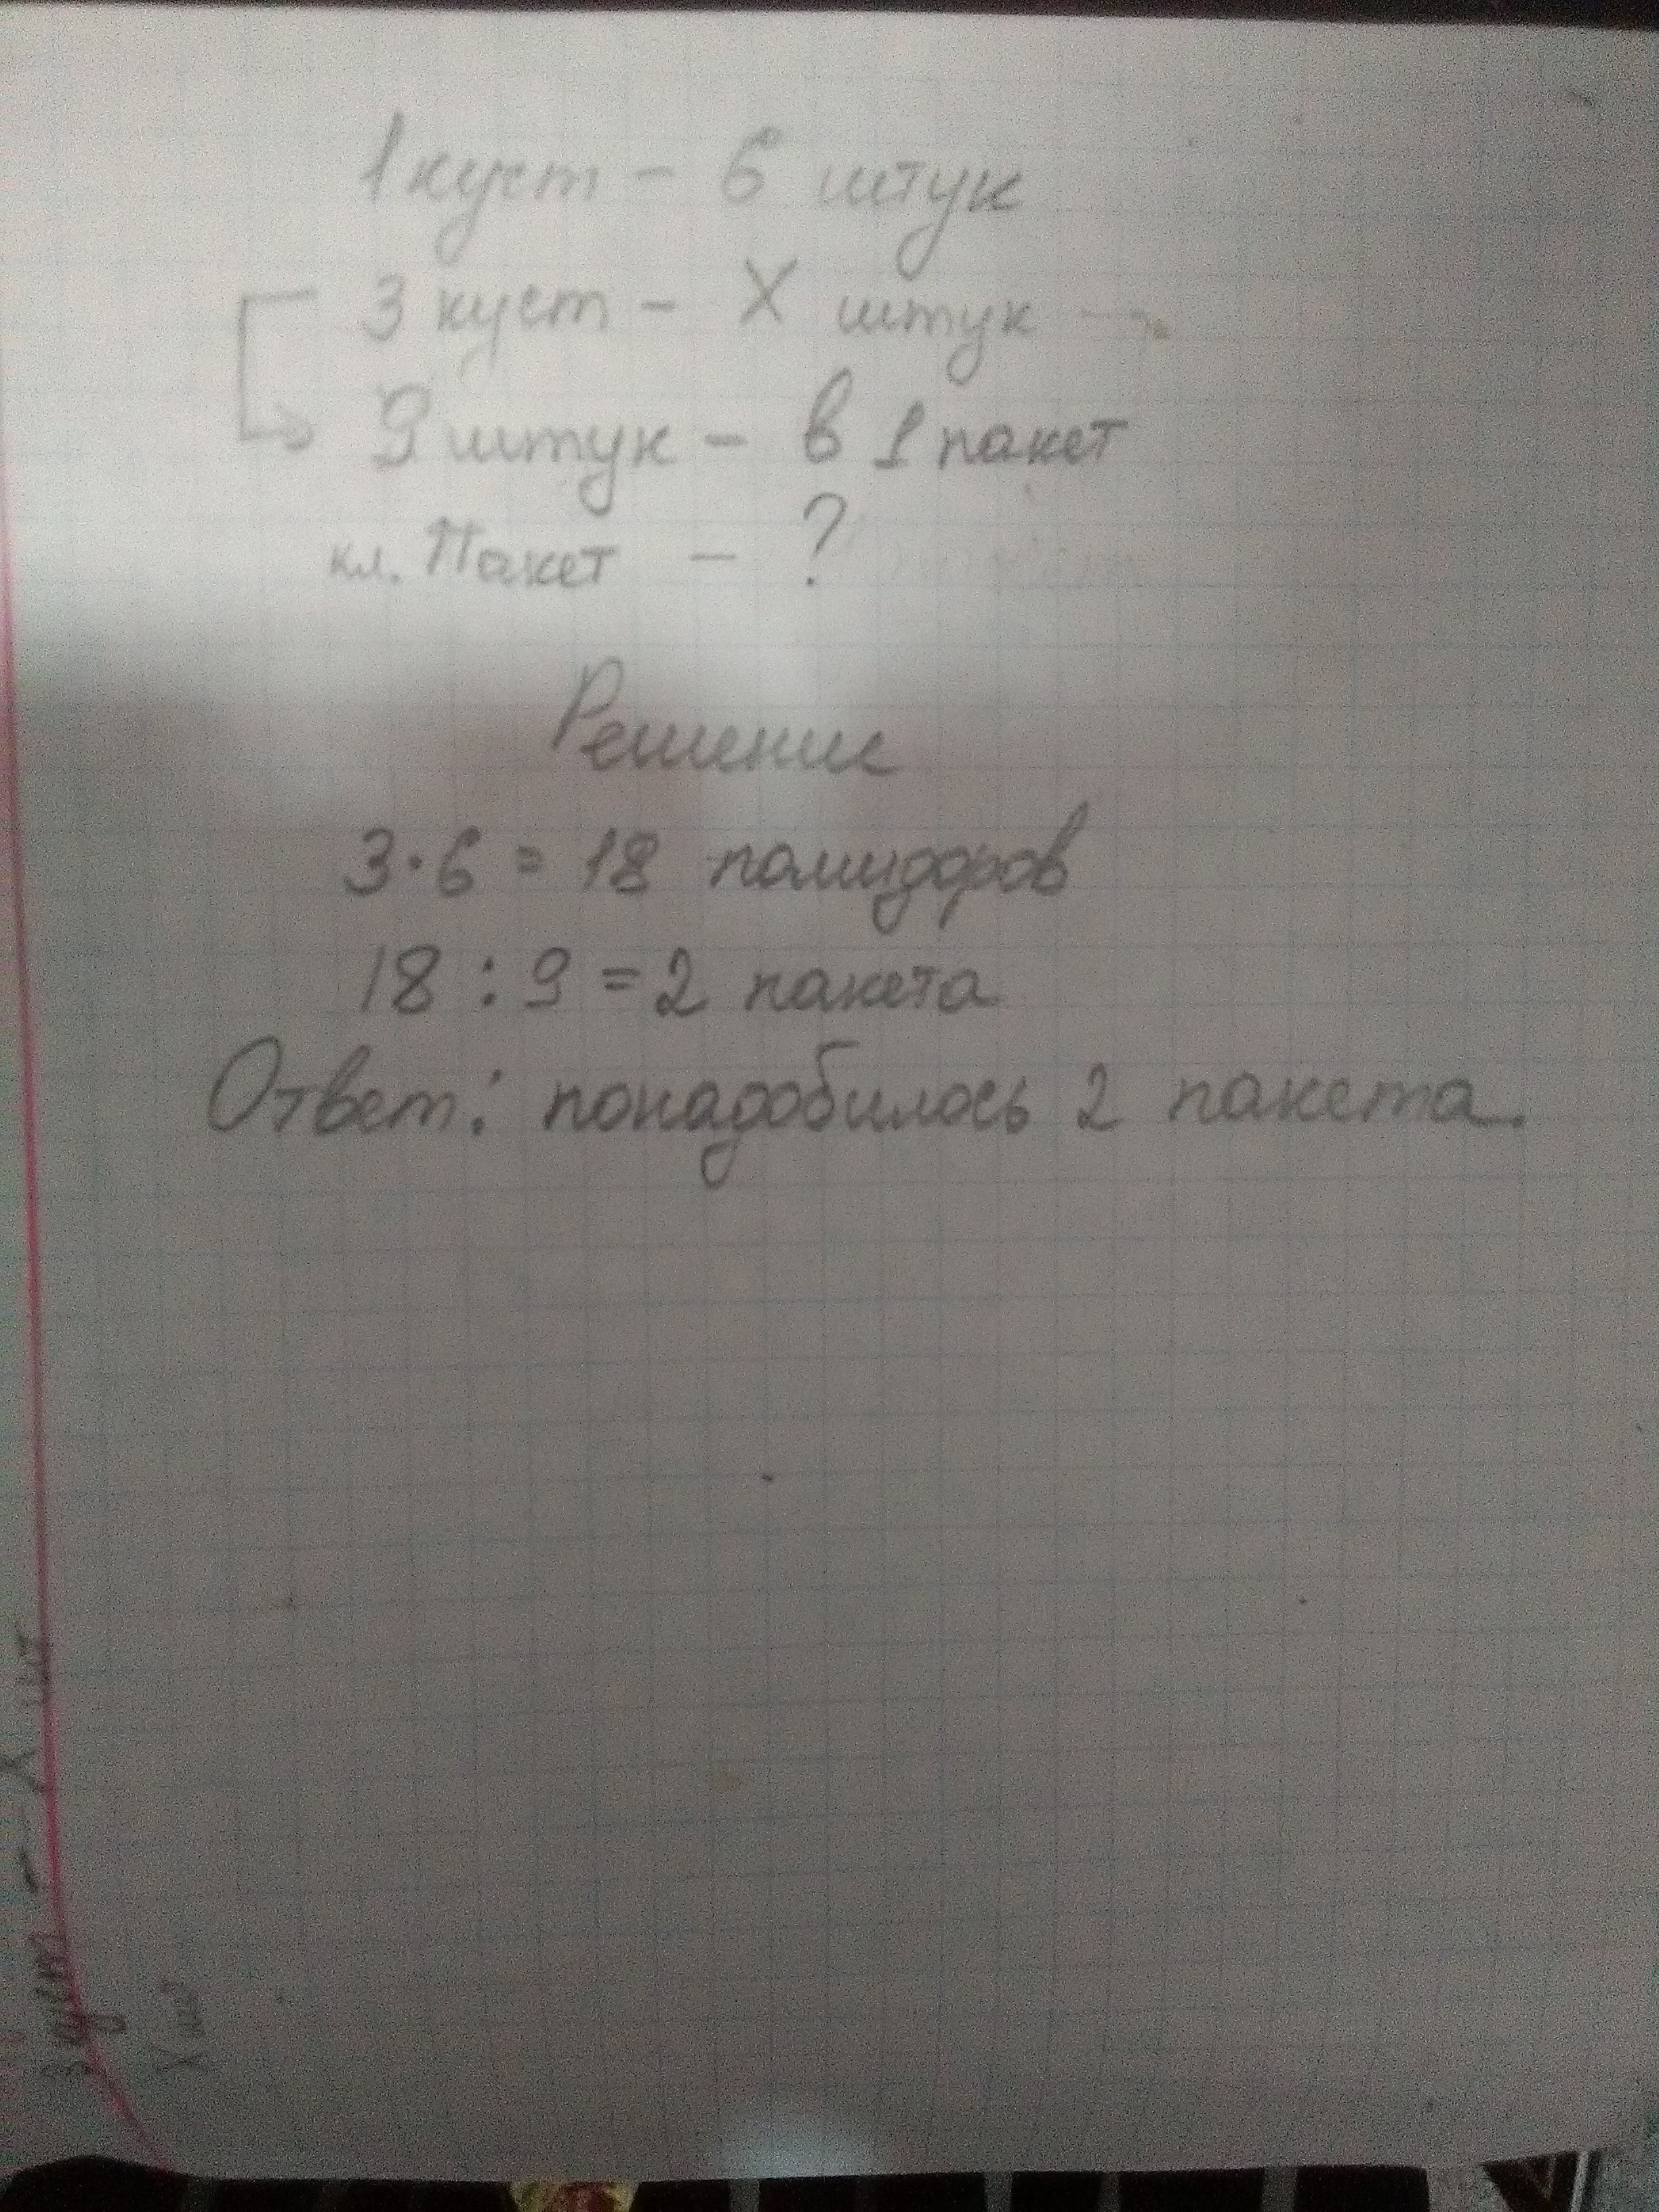 1 куст - 6 штук
3 куст - X штук
9 штук - в 1 пакет
кл. Пакет - ?
Решение
3·6 = 18 помидоров
18 : 9 = 2 пакета
Ответ: понадобилось 2 пакета.
3 куст - X шт
X ш